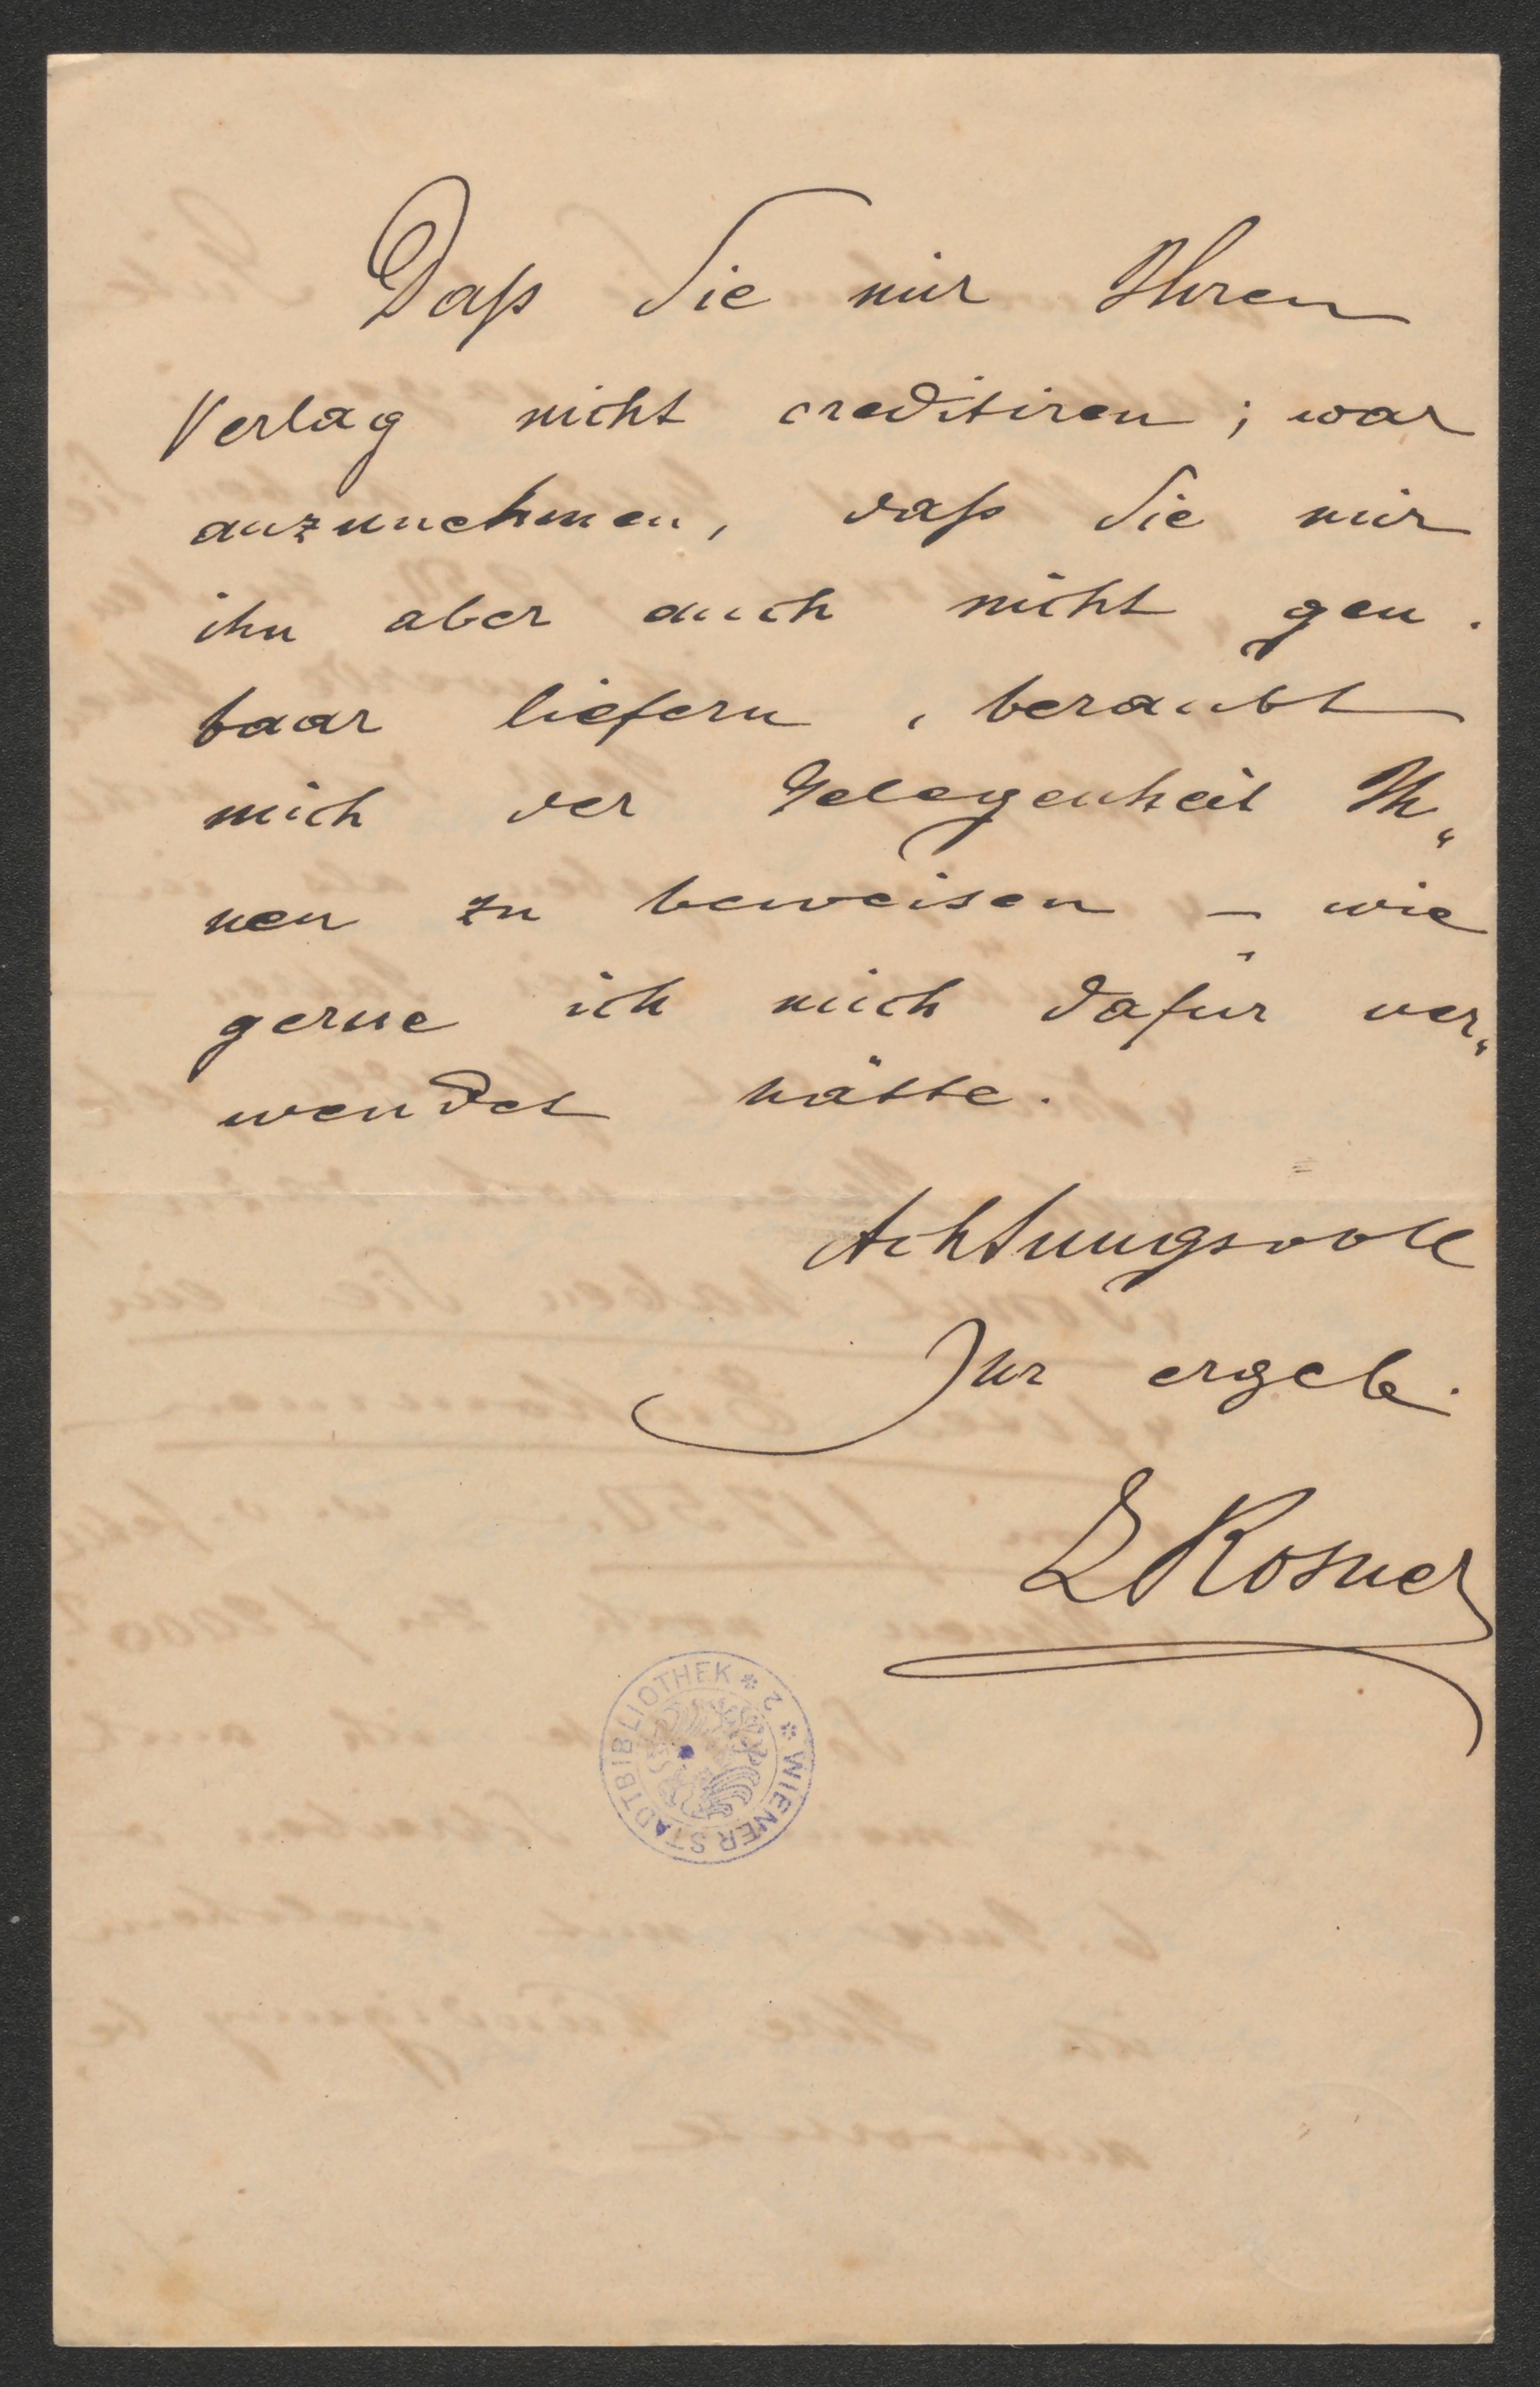 Daß Sie mir Ihren
Verlag nicht creditiren; war
anzunehmen, daß Sie mir
ihn aber auch nicht gen.
baar liefern, beraubt
mich der Gelegenheit Ih„
nen zu beweisen – wie
gerne ich mich dafür ver„
wendet hätte.
Achtungsvoll
Ihr ergeb.
L Rosner
* WIENER STADTBIBLIOTHEK *